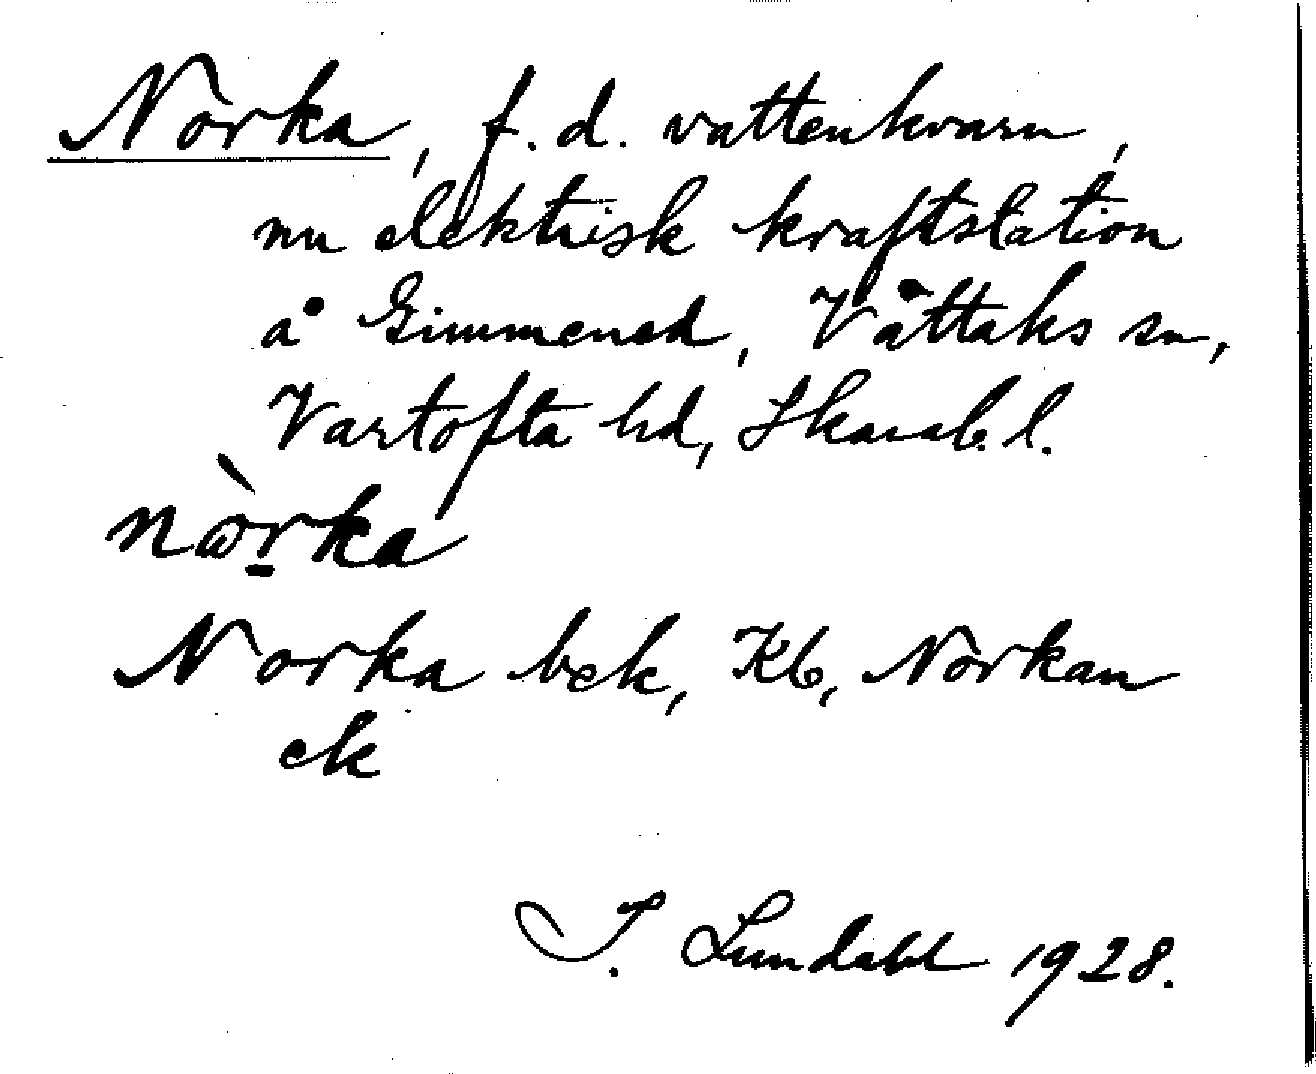 Norka, f. d. vattenkvarn,
nu elektrisk kraftstation
å Gimmened, Våttaks sn,
Vartofta hd, Skarab. l.
nòrka
Norka bek, Kb, Norkan
ek
I. Lundahl 1928.